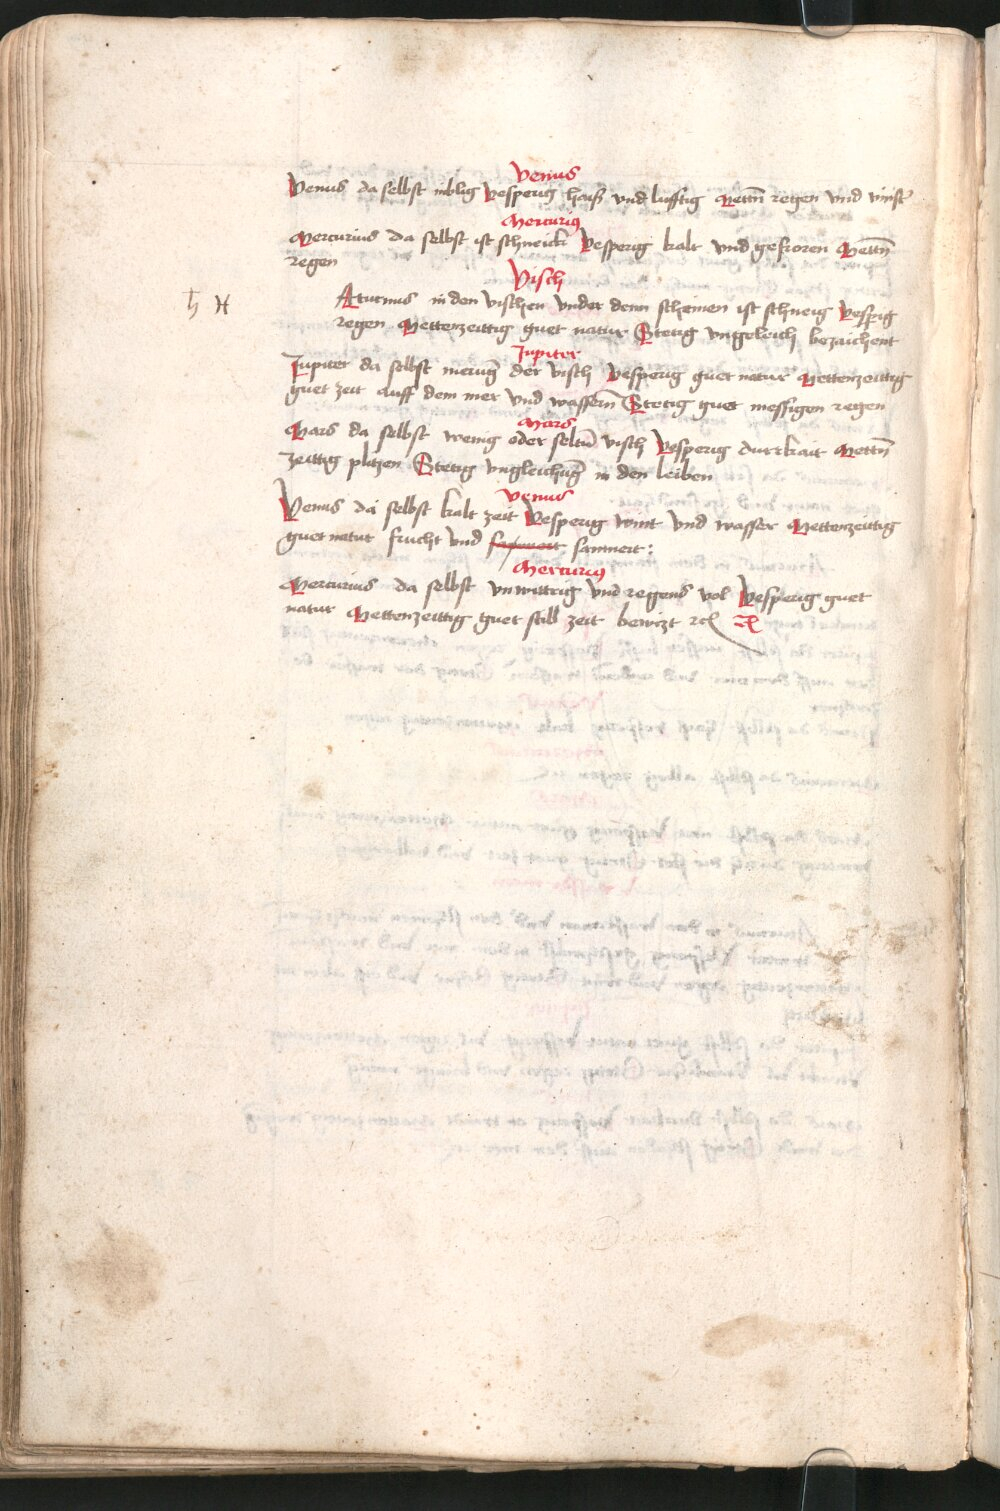 Venus
Venus da selbst niblig Vesperig haiß vnd lufftig Mettn̄ regen vnd vinst
Mercurius
Mercurius da selbst ist schneick Vesperig kalt vnd gefroren Mettn̄
regen
Visch
♄ ♓ Aturnus in den vischen vnder denn scheinen ist schneig Vesperig
regen Mettenzeittig guet natur Stetig vngeleich bezaichent
Jupiter
Jupiter da selbst meruḡ der visch Vesperig guet natur Mettenzeittig
guet zeit auff dem mer vnd wassern̄ Stetig guet messigen regen
Mars
Mars da selbst wenig oder seltn̄ visch Vesperig durrkait Mettn̄
zeittig plitzen Stetig vngleichūg in den leiben
Venus
Venus da selbst kalt zeit Vesperig wint vnd wasser Mettenzeittig
guet natur frucht vnd sammert:
Mercurius
Mercurius da selbst vnwittrig vnd regens vol Vesperig guet
natur Mettenzeittig guet still zeit bewizt rcl